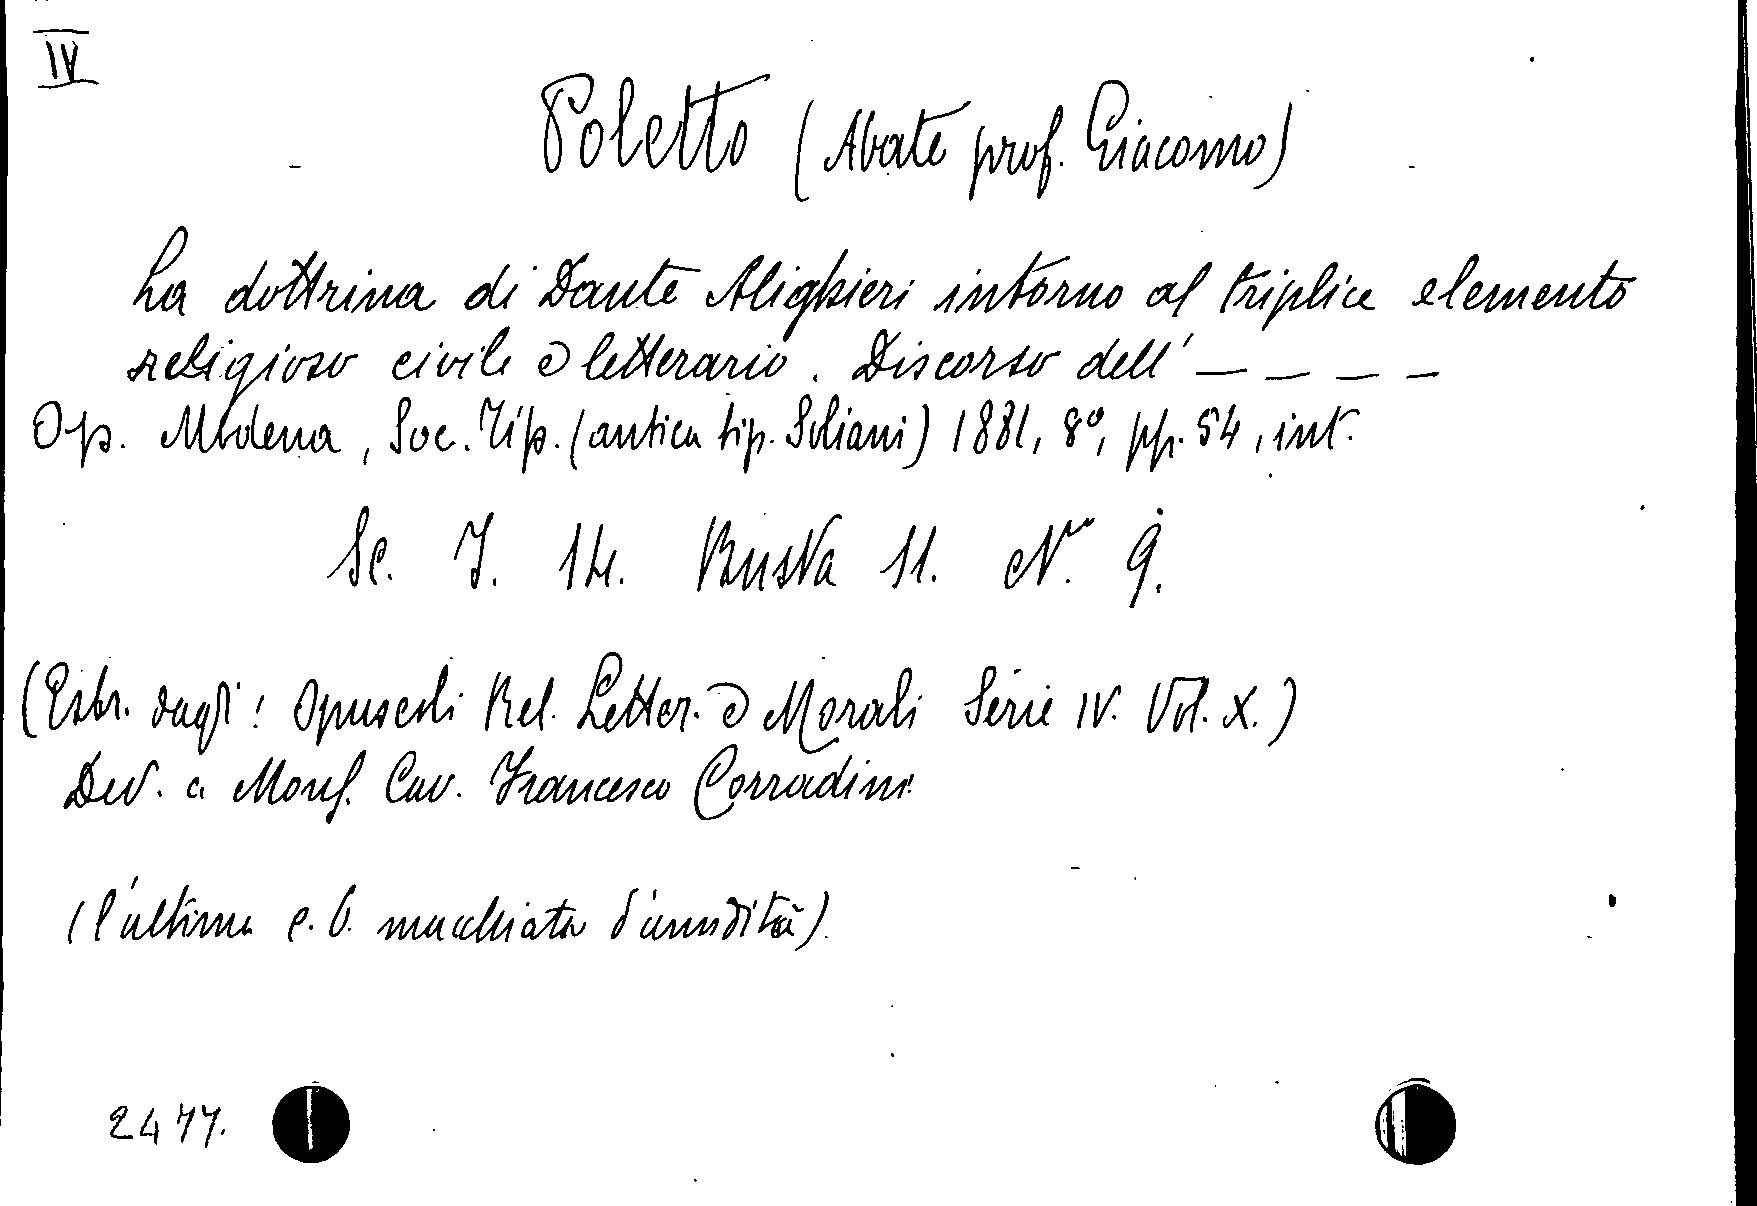 IV
Poletto (Abate prof. Giacomo)
La dottrina di Dante Alighieri intorno al triplice elemento
religioso civile e letterario. Discorso dell' _ _ _ _
Op. Modena, Soc. Tip. (antica tip. Soliani) 1881, 8°, pp. 54, int.
Sc. I. 14. Busta 11. N. 9.
(Estr. dagli: Opuscoli Rel. Letter. e Morali Serie IV. Vol. X.)
Ded. a Mons. Cav. Francesco Corradini
(l'ultima c. b. macchiata d'umidità).
2477.